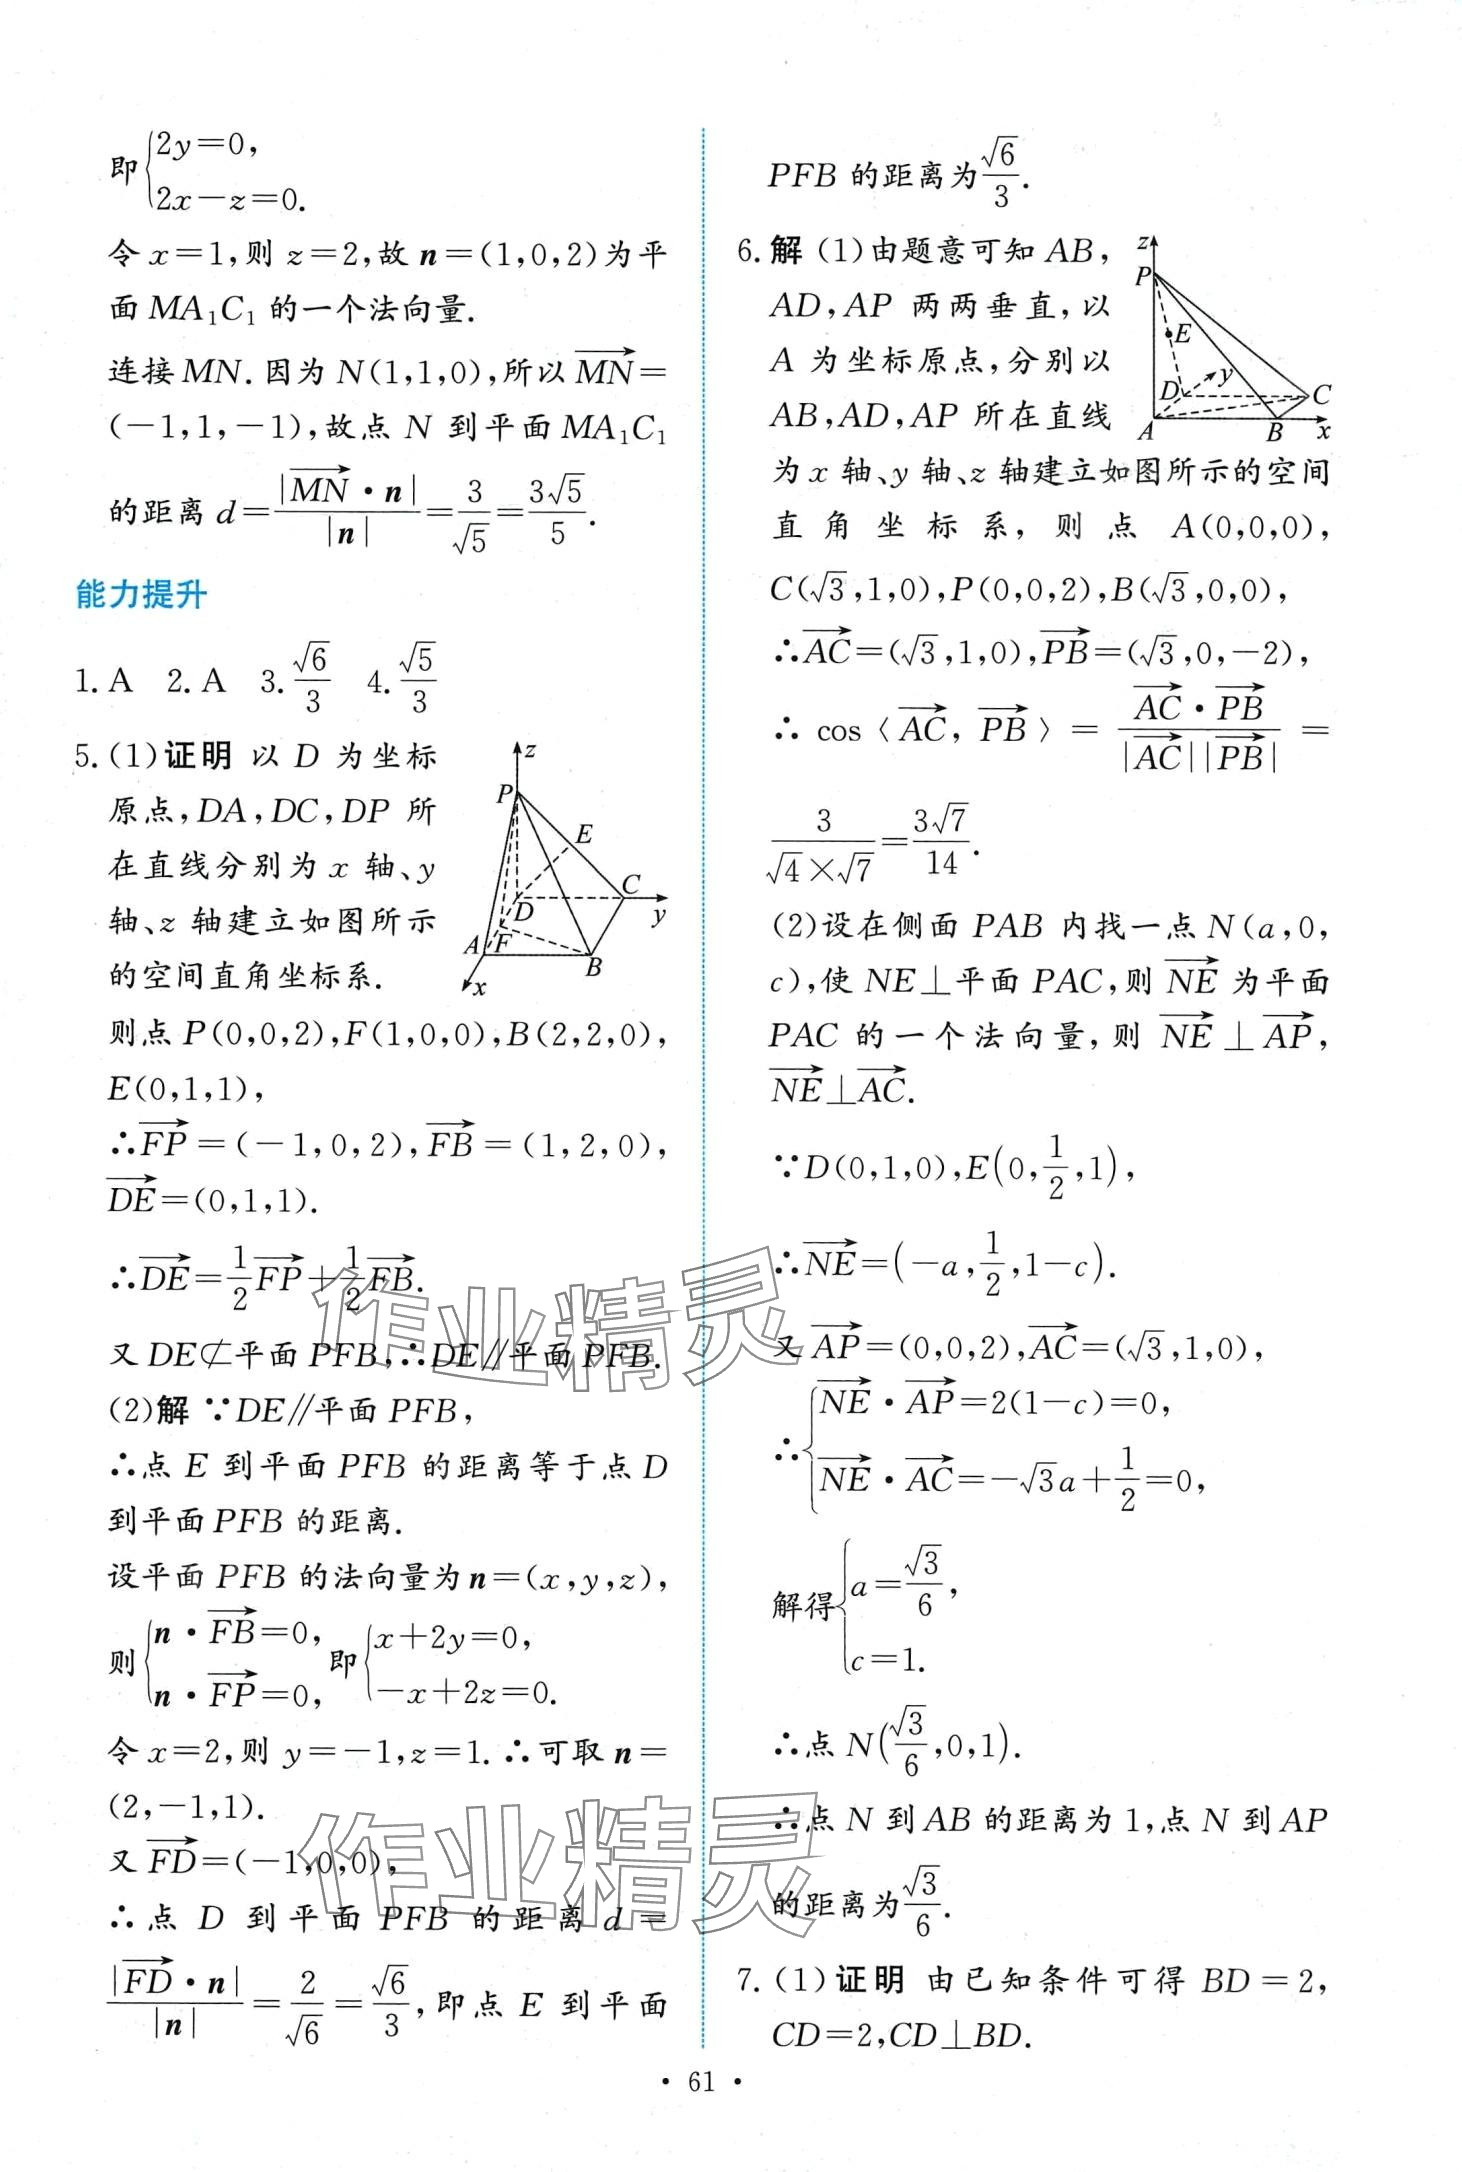 即{2y=0,
2x-z=0.
令 x=1,则 z=2,故 n=(1,0,2)为平
面 MA₁C₁ 的一个法向量.
连接 MN. 因为 N(1,1,0),所以 \overrightarrow{MN}=
(-1,1,-1),故点 N 到平面 MA₁C₁
的距离 d=\frac{|\overrightarrow{MN}·n|}{|n|}=\frac{3}{√5}=\frac{3√5}{5}.
能力提升
1. A 2. A 3. \frac{√6}{3} 4. \frac{√5}{3}
5. (1)证明 以 D 为坐标
原点,DA,DC,DP 所
在直线分别为 x 轴、y
轴、z 轴建立如图所示
的空间直角坐标系.
z
P
E
C
D
y
A
F
B
x
则点 P(0,0,2),F(1,0,0),B(2,2,0),
E(0,1,1),
∴\overrightarrow{FP}=(-1,0,2),\overrightarrow{FB}=(1,2,0),
\overrightarrow{DE}=(0,1,1).
∴\overrightarrow{DE}=\frac{1}{2}\overrightarrow{FP}+\frac{1}{2}\overrightarrow{FB}.
又 DE⊄平面 PFB,∴DE∥平面 PFB.
(2)解 ∵DE∥平面 PFB,
∴点 E 到平面 PFB 的距离等于点 D
到平面 PFB 的距离.
设平面 PFB 的法向量为 n=(x,y,z),
则{n·\overrightarrow{FB}=0, 即{x+2y=0,
n·\overrightarrow{FP}=0, -x+2z=0.
令 x=2,则 y=-1,z=1. ∴可取 n=
(2,-1,1).
又 \overrightarrow{FD}=(-1,0,0),
∴点 D 到平面 PFB 的距离 d=
\frac{|\overrightarrow{FD}·n|}{|n|}=\frac{2}{√6}=\frac{√6}{3},即点 E 到平面
PFB 的距离为\frac{√6}{3}.
6. 解 (1)由题意可知 AB,
AD,AP 两两垂直,以
A 为坐标原点,分别以
AB,AD,AP 所在直线
z
P
E
D
y
C
A
B
x
为 x 轴、y 轴、z 轴建立如图所示的空间
直角坐标系,则点 A(0,0,0),
C(√3,1,0),P(0,0,2),B(√3,0,0),
∴\overrightarrow{AC}=(√3,1,0),\overrightarrow{PB}=(√3,0,-2),
∴ cos〈\overrightarrow{AC},\overrightarrow{PB}〉=\frac{\overrightarrow{AC}·\overrightarrow{PB}}{|\overrightarrow{AC}||\overrightarrow{PB}|}=
\frac{3}{√4×√7}=\frac{3√7}{14}.
(2)设在侧面 PAB 内找一点 N(a,0,
c),使 NE⊥平面 PAC,则 \overrightarrow{NE} 为平面
PAC 的一个法向量,则 \overrightarrow{NE}⊥\overrightarrow{AP},
\overrightarrow{NE}⊥\overrightarrow{AC}.
∵D(0,1,0),E(0,\frac{1}{2},1),
∴\overrightarrow{NE}=(-a,\frac{1}{2},1-c).
又 \overrightarrow{AP}=(0,0,2),\overrightarrow{AC}=(√3,1,0),
∴{\overrightarrow{NE}·\overrightarrow{AP}=2(1-c)=0,
\overrightarrow{NE}·\overrightarrow{AC}=-√3a+\frac{1}{2}=0,
解得{a=\frac{√3}{6},
c=1.
∴点 N(\frac{√3}{6},0,1).
∴点 N 到 AB 的距离为 1,点 N 到 AP
的距离为\frac{√3}{6}.
7. (1)证明 由已知条件可得 BD=2,
CD=2,CD⊥BD.
· 61 ·
作业精灵
作业精灵